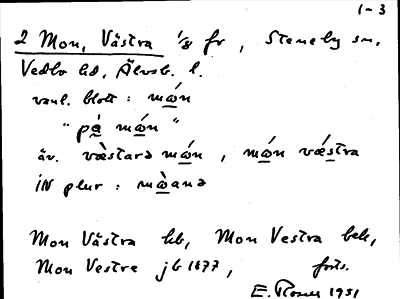 1-3
2 Mon, Västra 1/8 fr, Steneby sn,
Vedbo hd, Älvsb. l.
vanl. blott: mώ̱n
"pa̱̍ mώ̱n"
äv. væ̀starə mώ̱n, mώ̱n vǽstra
iN plur: mὼ̱anə
Mon Västra kb, Mon Vestra bek,
Mon Vestre jb 1877, forts.
E. Rosen 1951